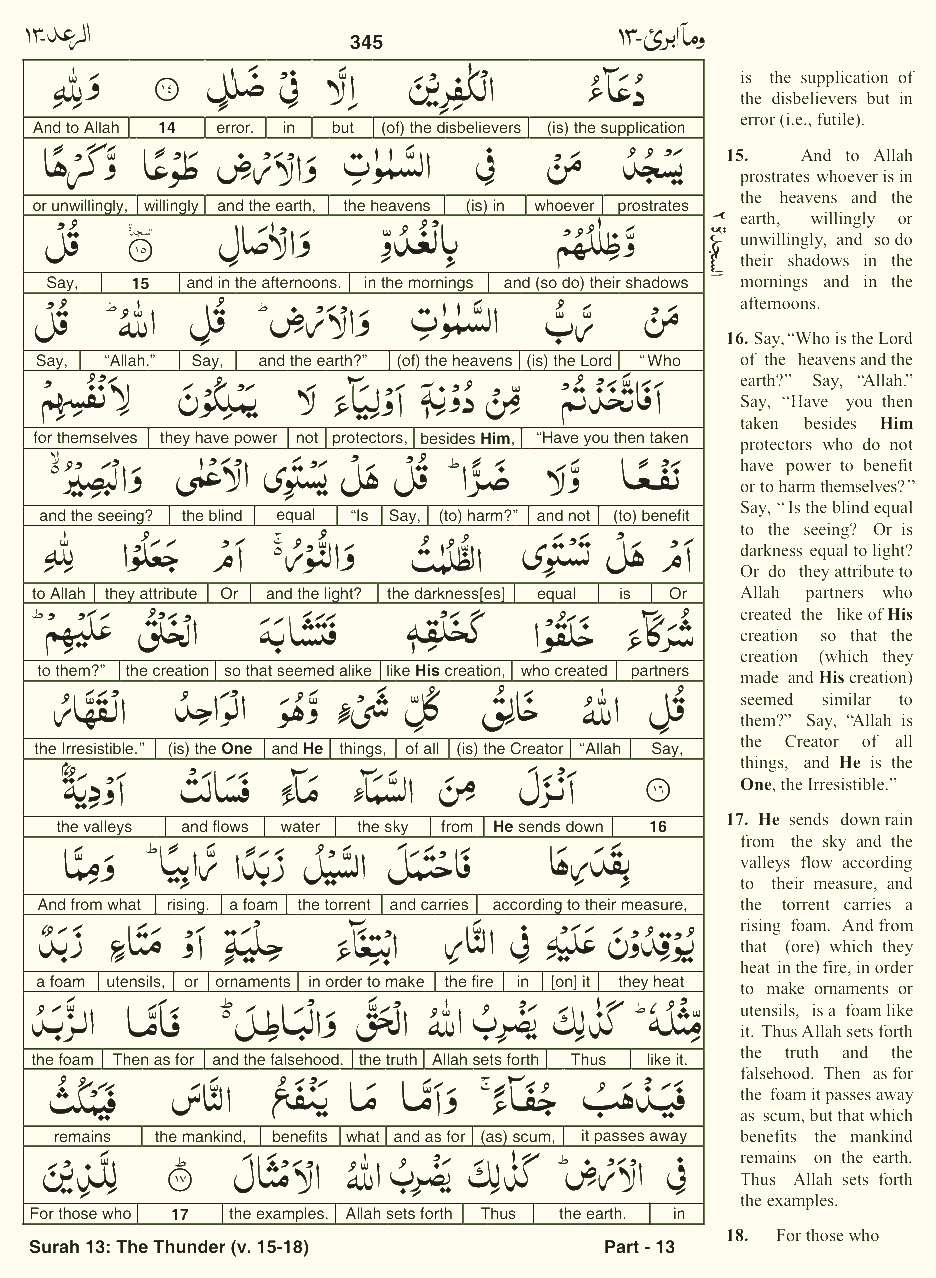 الرعد-١٣
345
ومآ ابرئ-١٣
دُعَآءُ الْكٰفِرِيْنَ اِلَّا فِيْ ضَلٰلٍ ١٤ وَلِلّٰهِ
And to Allah | 14 | error. | in | but | (of) the disbelievers | (is) the supplication
يَسْجُدُ مَنْ فِى السَّمٰوٰتِ وَالْاَرْضِ طَوْعًا وَّكَرْهًا
or unwillingly, | willingly | and the earth, | the heavens | (is) in | whoever | prostrates
وَّظِلٰلُهُمْ بِالْغُدُوِّ وَالْاٰصَالِ السجدة ١٥ قُلْ
Say, | 15 | and in the afternoons. | in the mornings | and (so do) their shadows
مَنْ رَّبُّ السَّمٰوٰتِ وَالْاَرْضِ ؕ قُلِ اللّٰهُ ؕ قُلْ
Say, | “Allah.” | Say, | and the earth?” | (of) the heavens | (is) the Lord | “Who
اَفَاتَّخَذْتُمْ مِّنْ دُوْنِهٖۤ اَوْلِيَآءَ لَا يَمْلِكُوْنَ لِاَنْفُسِهِمْ
for themselves | they have power | not | protectors, | besides Him, | “Have you then taken
نَفْعًا وَّلَا ضَرًّا ؕ قُلْ هَلْ يَسْتَوِى الْاَعْمٰى وَالْبَصِيْرُ ۙ
and the seeing? | the blind | equal | “Is | Say, | (to) harm?” | and not | (to) benefit
اَمْ هَلْ تَسْتَوِى الظُّلُمٰتُ وَالنُّوْرُ ۚ اَمْ جَعَلُوْا لِلّٰهِ
to Allah | they attribute | Or | and the light? | the darkness[es] | equal | is | Or
شُرَكَآءَ خَلَقُوْا كَخَلْقِهٖ فَتَشَابَهَ الْخَلْقُ عَلَيْهِمْ ؕ
to them?” | the creation | so that seemed alike | like His creation, | who created | partners
قُلِ اللّٰهُ خَالِقُ كُلِّ شَىْءٍ وَّهُوَ الْوَاحِدُ الْقَهَّارُ
the Irresistible.” | (is) the One | and He | things, | of all | (is) the Creator | “Allah | Say,
١٦ اَنْزَلَ مِنَ السَّمَآءِ مَآءً فَسَالَتْ اَوْدِيَةٌۢ
the valleys | and flows | water | the sky | from | He sends down | 16
بِقَدَرِهَا فَاحْتَمَلَ السَّيْلُ زَبَدًا رَّابِيًا ؕ وَمِمَّا
And from what | rising. | a foam | the torrent | and carries | according to their measure,
يُوْقِدُوْنَ عَلَيْهِ فِى النَّارِ ابْتِغَآءَ حِلْيَةٍ اَوْ مَتَاعٍ زَبَدٌ
a foam | utensils, | or | ornaments | in order to make | the fire | in | [on] it | they heat
مِّثْلُهٗ ؕ كَذٰلِكَ يَضْرِبُ اللّٰهُ الْحَقَّ وَالْبَاطِلَ ؕ فَاَمَّا الزَّبَدُ
the foam | Then as for | and the falsehood. | the truth | Allah sets forth | Thus | like it.
فَيَذْهَبُ جُفَآءً ۚ وَاَمَّا مَا يَنْفَعُ النَّاسَ فَيَمْكُثُ
remains | the mankind, | benefits | what | and as for | (as) scum, | it passes away
فِى الْاَرْضِ ؕ كَذٰلِكَ يَضْرِبُ اللّٰهُ الْاَمْثَالَ ١٧ لِلَّذِيْنَ
For those who | 17 | the examples. | Allah sets forth | Thus | the earth. | in
السجدة ٢
is the supplication of
the disbelievers but in
error (i.e., futile).
15. And to Allah
prostrates whoever is in
the heavens and the
earth, willingly or
unwillingly, and so do
their shadows in the
mornings and in the
afternoons.
16. Say, “Who is the Lord
of the heavens and the
earth?” Say, “Allah.”
Say, “Have you then
taken besides Him
protectors who do not
have power to benefit
or to harm themselves?”
Say, “Is the blind equal
to the seeing? Or is
darkness equal to light?
Or do they attribute to
Allah partners who
created the like of His
creation so that the
creation (which they
made and His creation)
seemed similar to
them?” Say, “Allah is
the Creator of all
things, and He is the
One, the Irresistible.”
17. He sends down rain
from the sky and the
valleys flow according
to their measure, and
the torrent carries a
rising foam. And from
that (ore) which they
heat in the fire, in order
to make ornaments or
utensils, is a foam like
it. Thus Allah sets forth
the truth and the
falsehood. Then as for
the foam it passes away
as scum, but that which
benefits the mankind
remains on the earth.
Thus Allah sets forth
the examples.
18. For those who
Surah 13: The Thunder (v. 15-18)
Part - 13